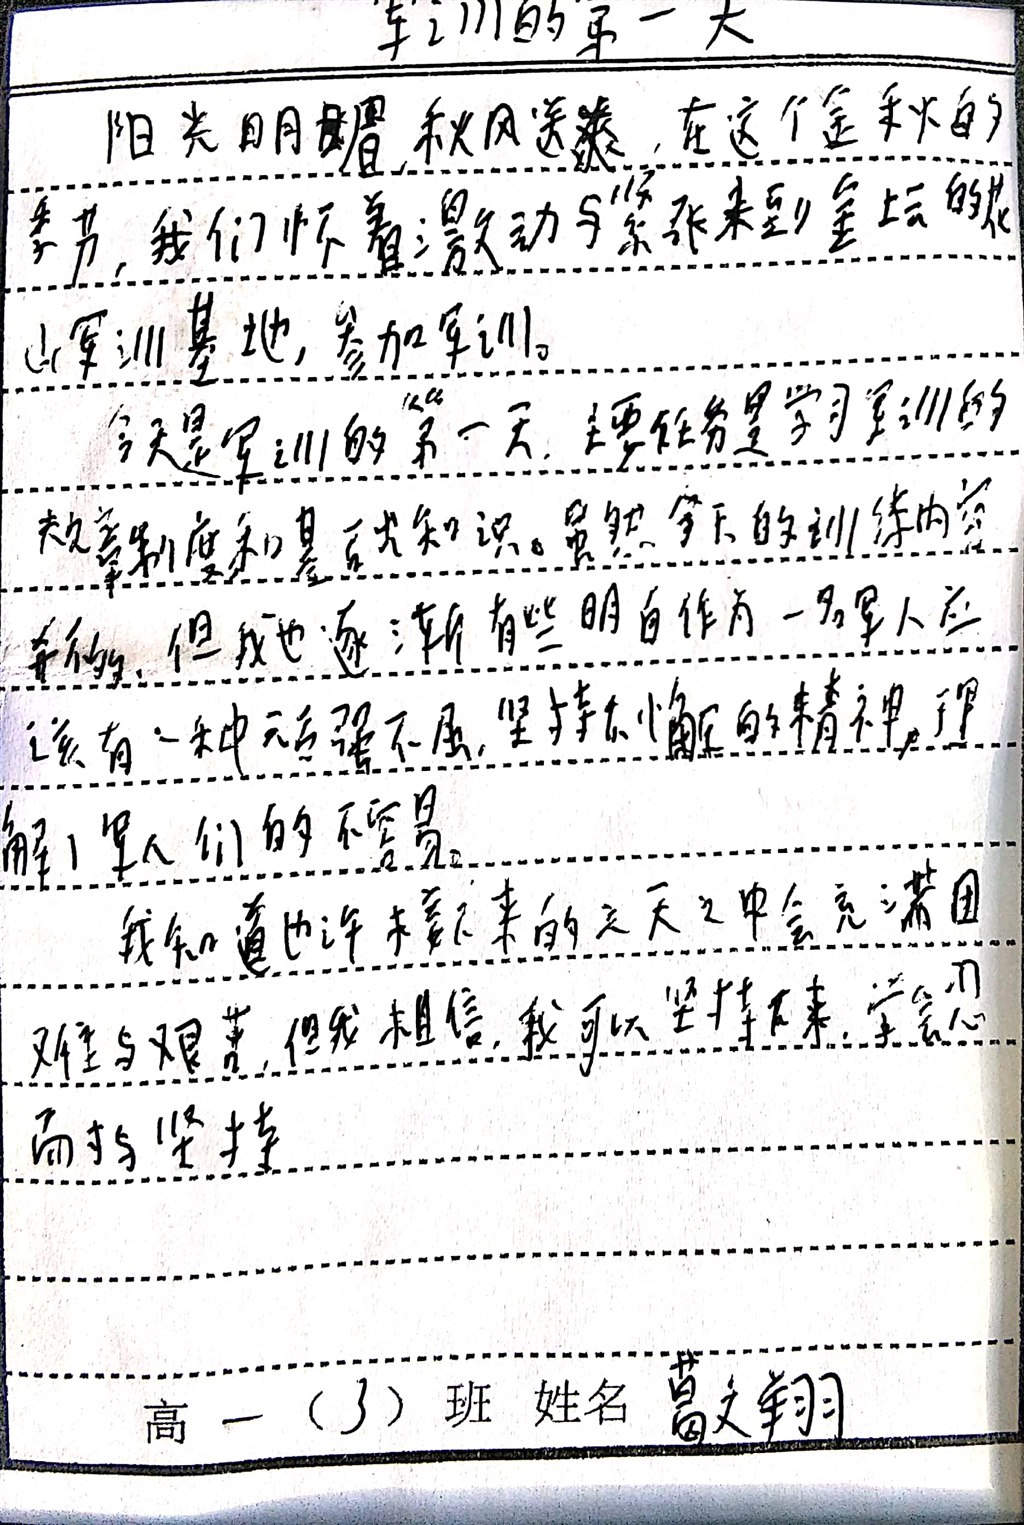 军训的第一天
阳光明媚,秋风送爽,在这个金秋的
季节,我们怀着激动与紧张来到金坛的花
山军训基地,参加军训。
今天是军训的第一天,主要任务是学习军训的
规章制度和基础知识。虽然今天的训练内容
,但我也逐渐有些明白作为一名军人应
该有一种顽强不屈,坚持不懈的精神,理
解了军人们的不容易。
我知道也许接下来的六天之中会充满困
难与艰苦,但我相信,我可以坚持下来,学会忍
耐与坚持
高一(3)班 姓名 葛文翔